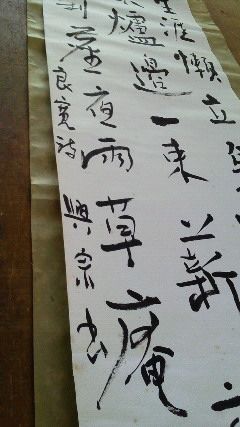 生涯懶立
爐邊一束薪
塵夜雨草庵
良寛詩 興宗書